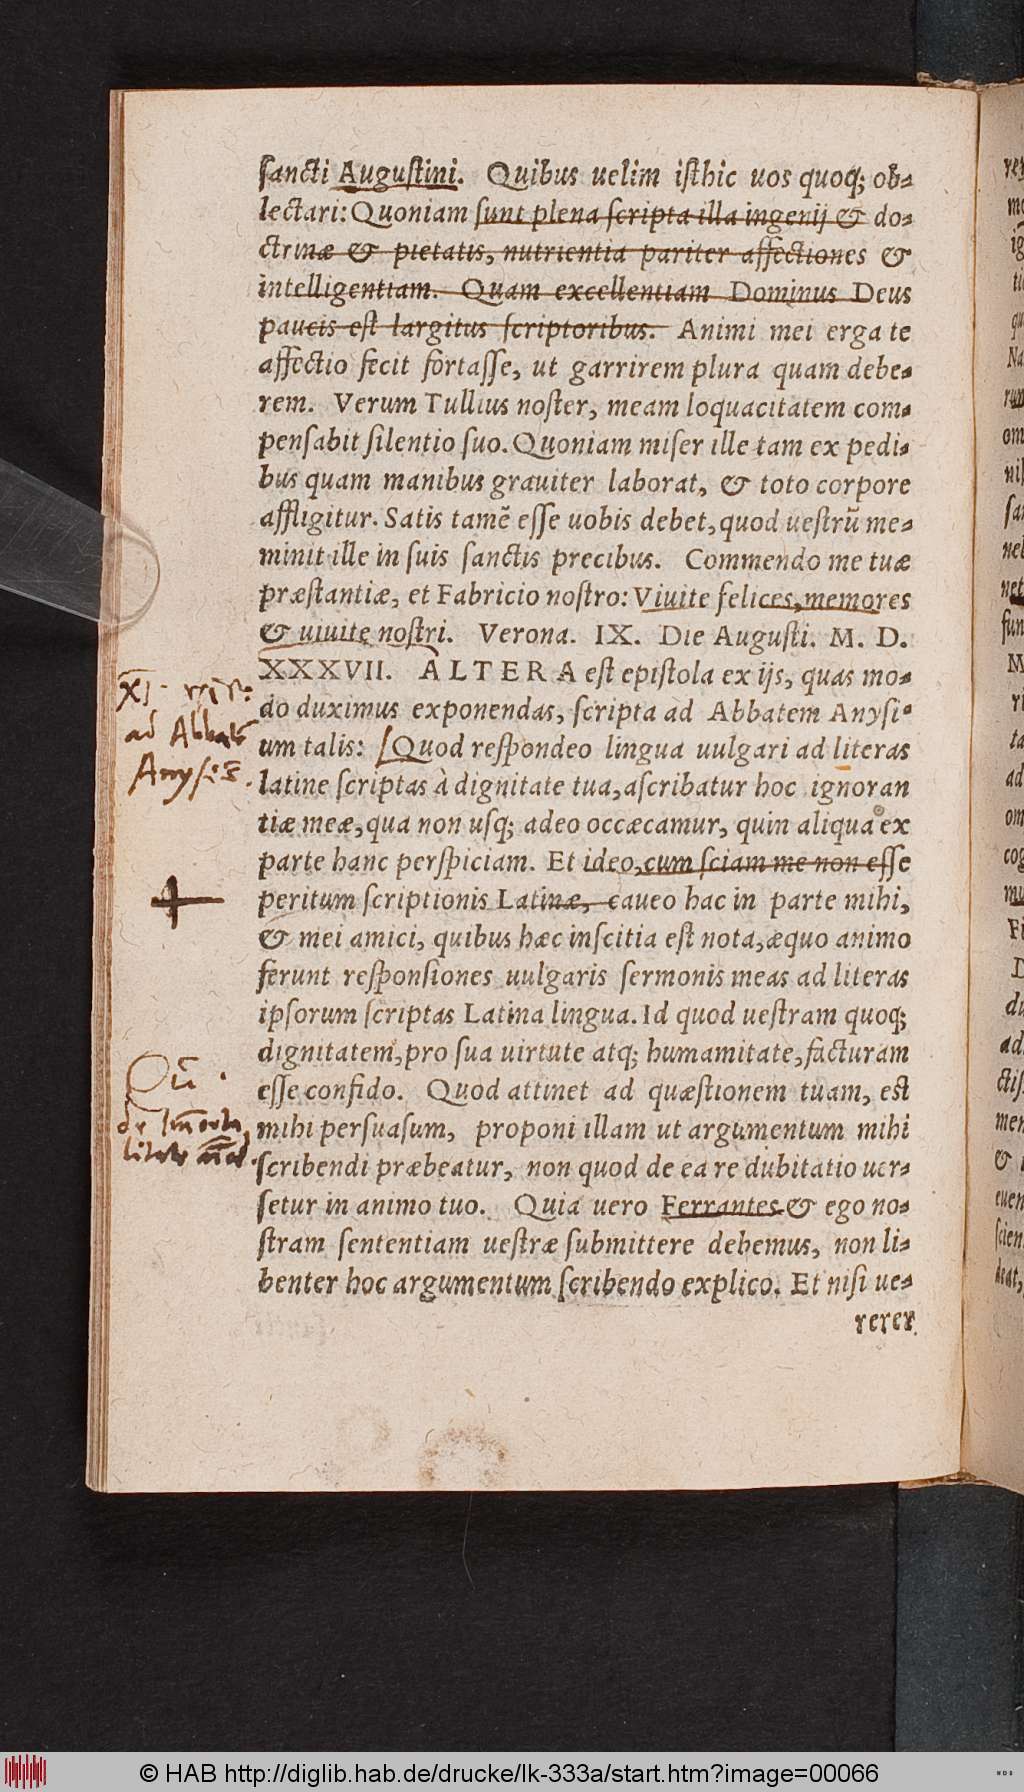 sancti Augustini. Quibus uelim isthic uos quoq; ob-
lectari: Quoniam sunt plena scripta illa ingenij & do-
ctrinæ & pietatis, nutrientia pariter affectiones &
intelligentiam. Quam excellentiam Dominus Deus
paucis est largitus scriptoribus. Animi mei erga te
affectio fecit fortasse, ut garrirem plura quam debe-
rem. Verum Tullius noster, meam loquacitatem com-
pensabit silentio suo. Quoniam miser ille tam ex pedi-
bus quam manibus grauiter laborat, & toto corpore
affligitur. Satis tamē esse uobis debet, quod uestrū me-
minit ille in suis sanctis precibus. Commendo me tuæ
præstantiæ, et Fabricio nostro: Viuite felices, memores
& uiuite nostri. Verona. IX. Die Augusti. M. D.
XXXVII. ALTERA est epistola ex ijs, quas mo-
do duximus exponendas, scripta ad Abbatem Anysi-
um talis: Quod respondeo lingua uulgari ad literas
latine scriptas à dignitate tua, ascribatur hoc ignoran
tiæ meæ, qua non usq; adeo occæcamur, quin aliqua ex
parte hanc perspiciam. Et ideo, cum sciam me non esse
peritum scriptionis Latinæ, caueo hac in parte mihi,
& mei amici, quibus hæc inscitia est nota, æquo animo
ferunt responsiones uulgaris sermonis meas ad literas
ipsorum scriptas Latina lingua. Id quod uestram quoq;
dignitatem, pro sua uirtute atq; humamitate, facturam
esse confido. Quod attinet ad quæstionem tuam, est
mihi persuasum, proponi illam ut argumentum mihi
scribendi præbeatur, non quod de ea re dubitatio uer-
setur in animo tuo. Quia uero Ferrantes & ego no-
stram sententiam uestræ submittere debemus, non li-
benter hoc argumentum scribendo explico. Et nisi ue-
rerer
ad Abbatē
Anysiū.
© HAB http://diglib.hab.de/drucke/lk-333a/start.htm?image=00066